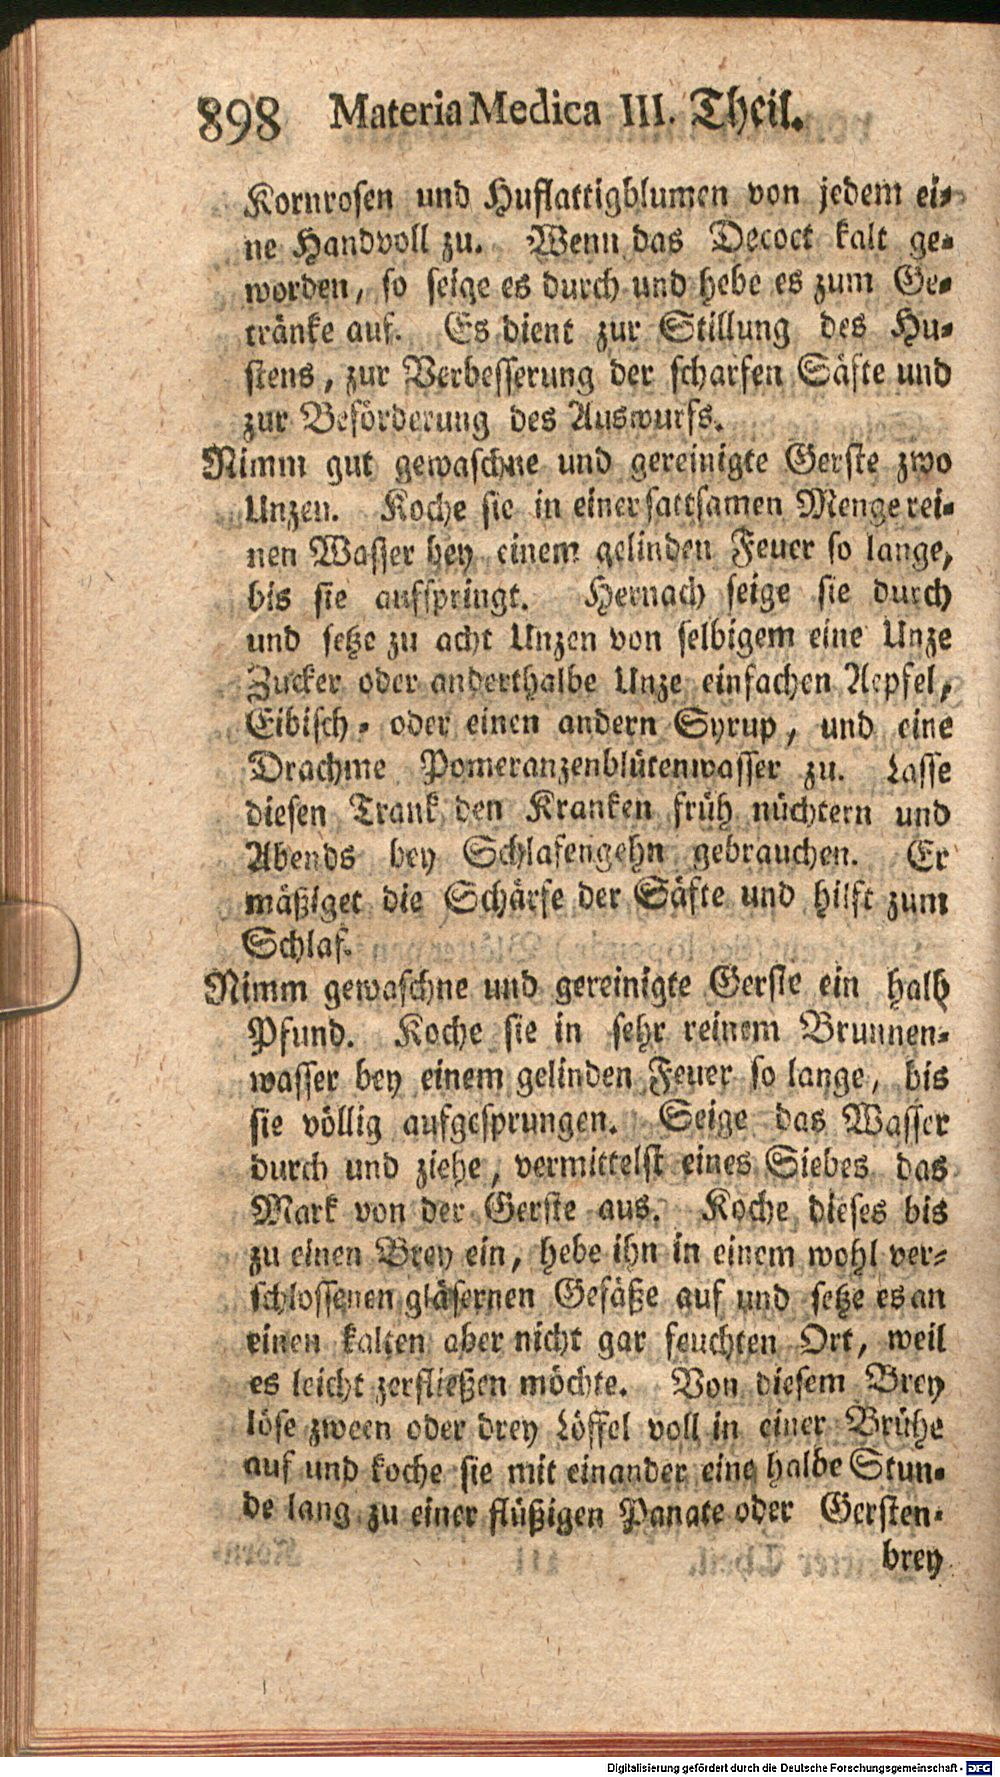 898 Materia Medica III. Theil.
Kornrosen und Huflattigblumen von jedem ei-
ne Handvoll zu. Wenn das Decoct kalt ge-
worden, so seige es durch und hebe es zum Ge-
tränke auf. Es dient zur Stillung des Hu-
stens, zur Verbesserung der scharfen Säfte und
zur Beförderung des Auswurfs.
Nimm gut gewaschne und gereinigte Gerste zwo
Unzen. Koche sie in einer sattsamen Menge rei-
nen Wasser bey einem gelinden Feuer so lange,
bis sie aufspringt. Hernach seige sie durch
und setze zu acht Unzen von selbigem eine Unze
Zucker oder anderthalbe Unze einfachen Aepfel,
Eibisch- oder einen andern Syrup, und eine
Drachme Pomeranzenblütenwasser zu. Lasse
diesen Trank den Kranken früh nüchtern und
Abends bey Schlafengehn gebrauchen. Er
mäßiget die Schärfe der Säfte und hilft zum
Schlaf.
Nimm gewaschne und gereinigte Gerste ein halb
Pfund. Koche sie in sehr reinem Brunnen-
wasser bey einem gelinden Feuer so lange, bis
sie völlig aufgesprungen. Seige das Wasser
durch und ziehe, vermittelst eines Siebes das
Mark von der Gerste aus. Koche dieses bis
zu einen Brey ein, hebe ihn in einem wohl ver-
schlossenen gläsernen Gefäße auf und setze es an
einen kalten aber nicht gar feuchten Ort, weil
es leicht zerfließen möchte. Von diesem Brey
löse zween oder drey Löffel voll in einer Brühe
auf und koche sie mit einander eine halbe Stun-
de lang zu einer flüßigen Panate oder Gersten-
brey
Digitalisierung gefördert durch die Deutsche Forschungsgemeinschaft - DFG